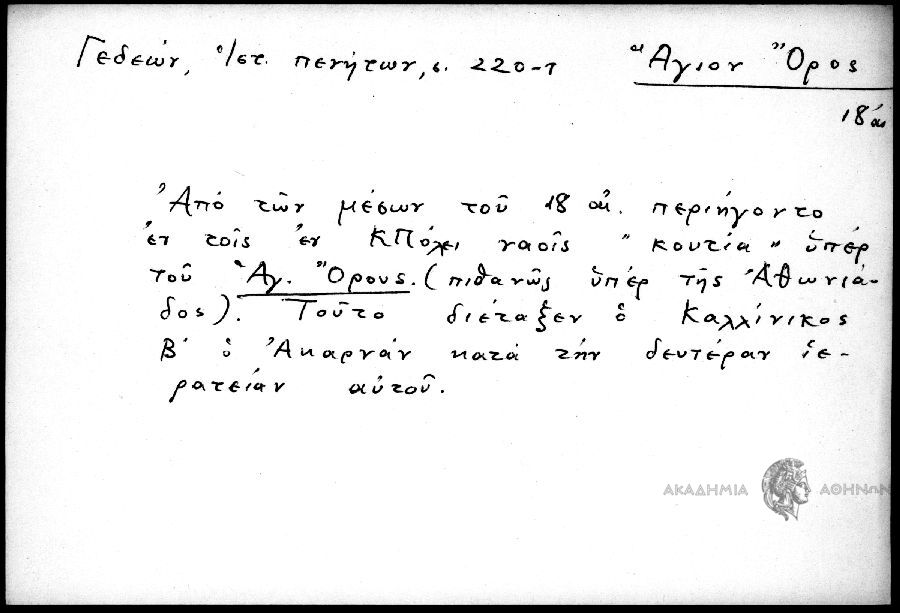 Γεδεών, Ἱστ. πενήτων, σ. 220-1 Ἅγιον Ὄρος
18 αἰ.
Ἀπό τῶν μέσων τοῦ 18 αἰ. περιήγοντο
ἐν τοῖς ἐν ΚΠόλει ναοῖς "κουτία" ὑπέρ
τοῦ Ἁγ. Ὄρους. (πιθανῶς ὑπέρ τῆς Ἀθωνιά-
δος). Τοῦτο διέταξεν ὁ Καλλίνικος
Β' ὁ Ἀκαρνάν κατά τήν δευτέραν ἱε-
ρατείαν αὐτοῦ.
ΑΚΑΔΗΜΙΑ ΑΘΗΝΩΝ